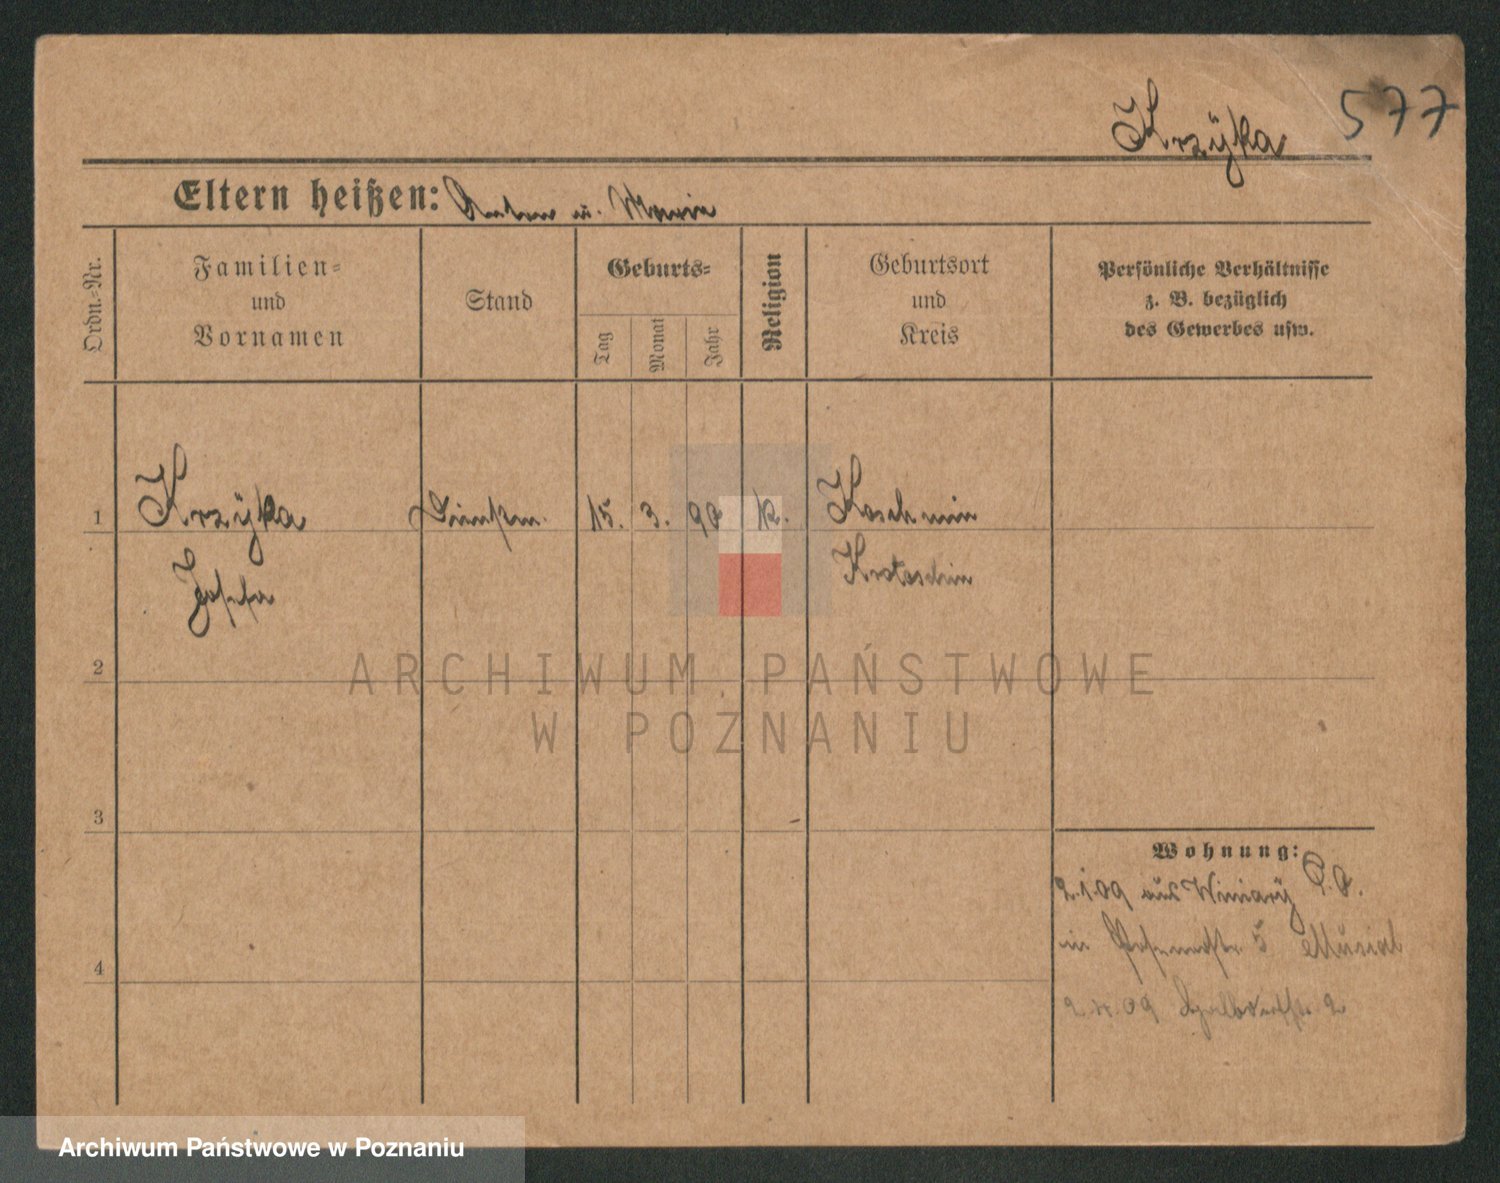 Krzÿka 577
Eltern heißen: Anton u. Maria
Ordn.-Nr.
Familien-
und
Vornamen
Stand
Geburts-
Tag
Monat
Jahr
Religion
Geburtsort
und
Kreis
Persönliche Verhältnisse
z. B. bezüglich
des Gewerbes usw.
1 Krzÿka 15. 3. 90 k. Koschmin
Josefa Krotoschin
2
3
4
Wohnung:
2.1.09 aus Winiarÿ P.O.
in 5
09 2
ARCHIWUM PAŃSTWOWE
W POZNANIU
Archiwum Państwowe w Poznaniu